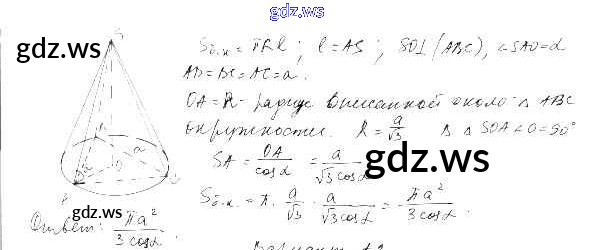 gdz.ws
S
Sб.к = πRl ; l = AS ; SO⊥(ABC), ∠SAO = α
gdz.ws
AB = BC = AC = a.
OA = R - радиус описанной около Δ ABC
окружности. R = a/√3 В Δ SOA ∠O = 90°
SA = OA/cosα = a/√3 cosα
gdz.ws
Sб.к = π · a/√3 · a/√3 cosα = πa²/3 cosα.
gdz.ws
Ответ: πa²/3 cosα.